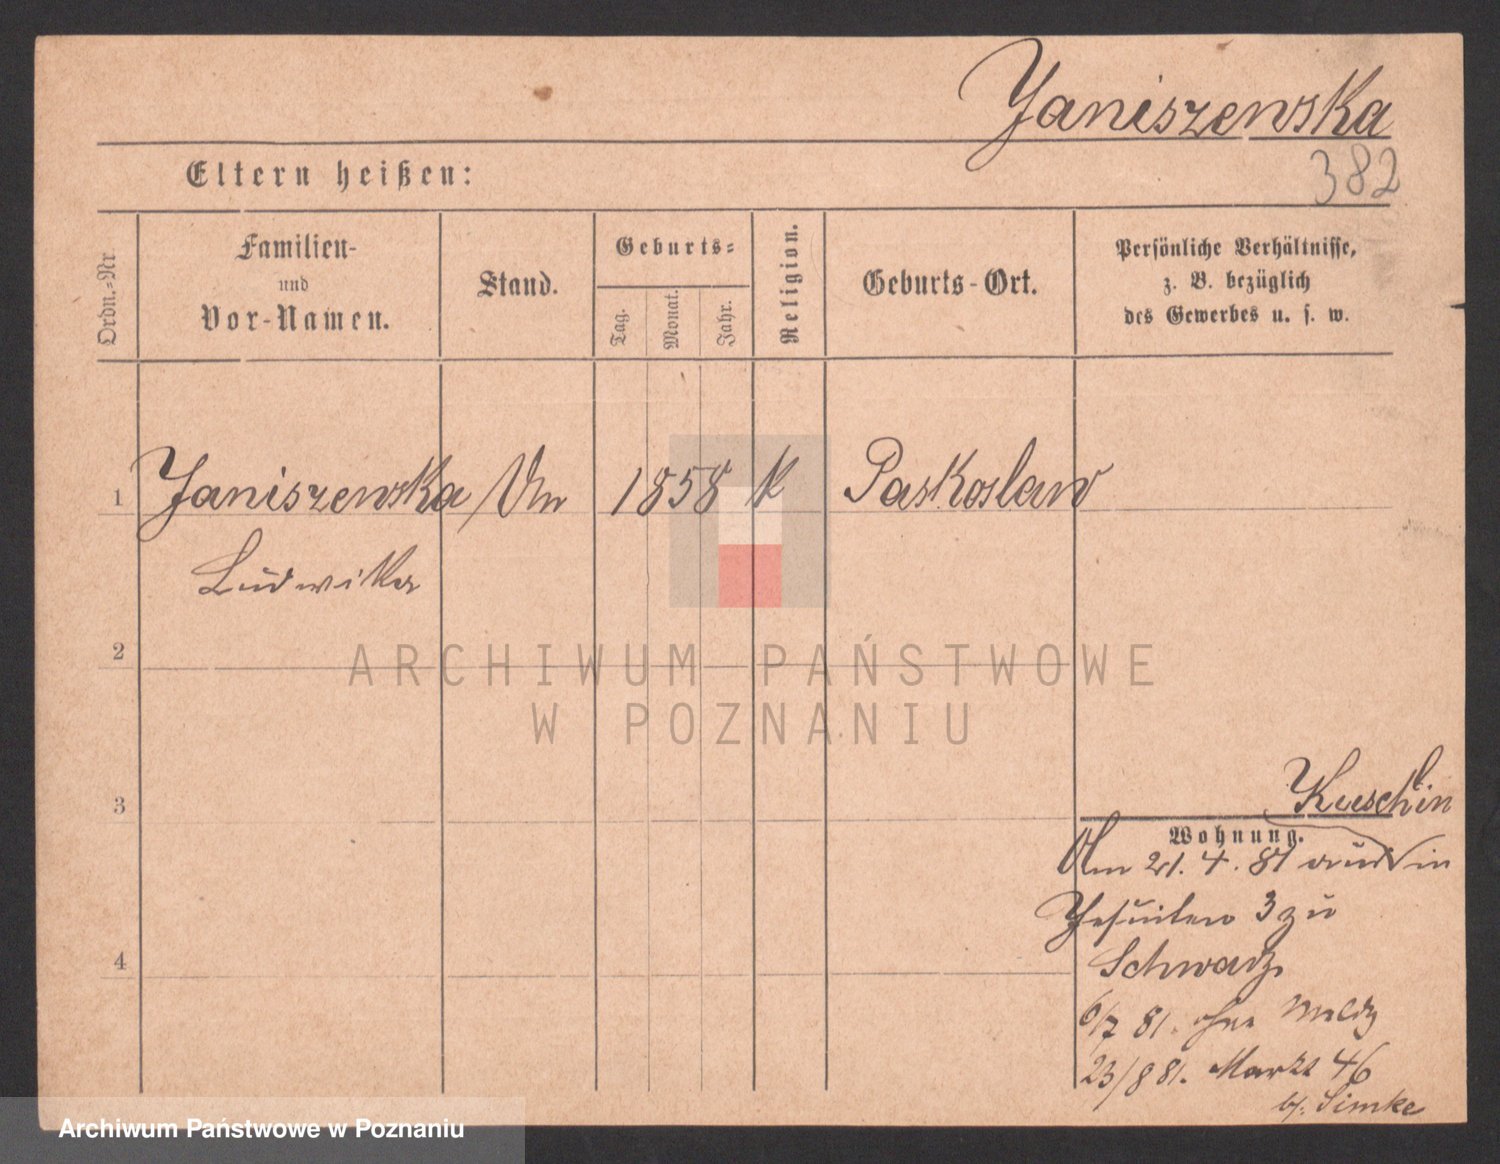 Janiszewska
382
Eltern heißen:
Ordn.-Nr.
Familien-
und
Vor-Namen.
Stand.
Geburts-
Tag.
Monat.
Jahr.
Religion.
Geburts-Ort.
Persönliche Verhältnisse,
z. B. bezüglich
des Gewerbes u. s. w.
1 Janiszewska Un 1858 k Paskoslaw
Ludwika
2
ARCHIWUM PAŃSTWOWE
W POZNANIU
3
Kuschlin
Wohnung.
Am 21. 4. 81 aus in
Jesuiten 3 zu
Schwarz
4
6/7 81. ohne Meldg
23/8 81. Markt 46
b/. Simke
Archiwum Państwowe w Poznaniu